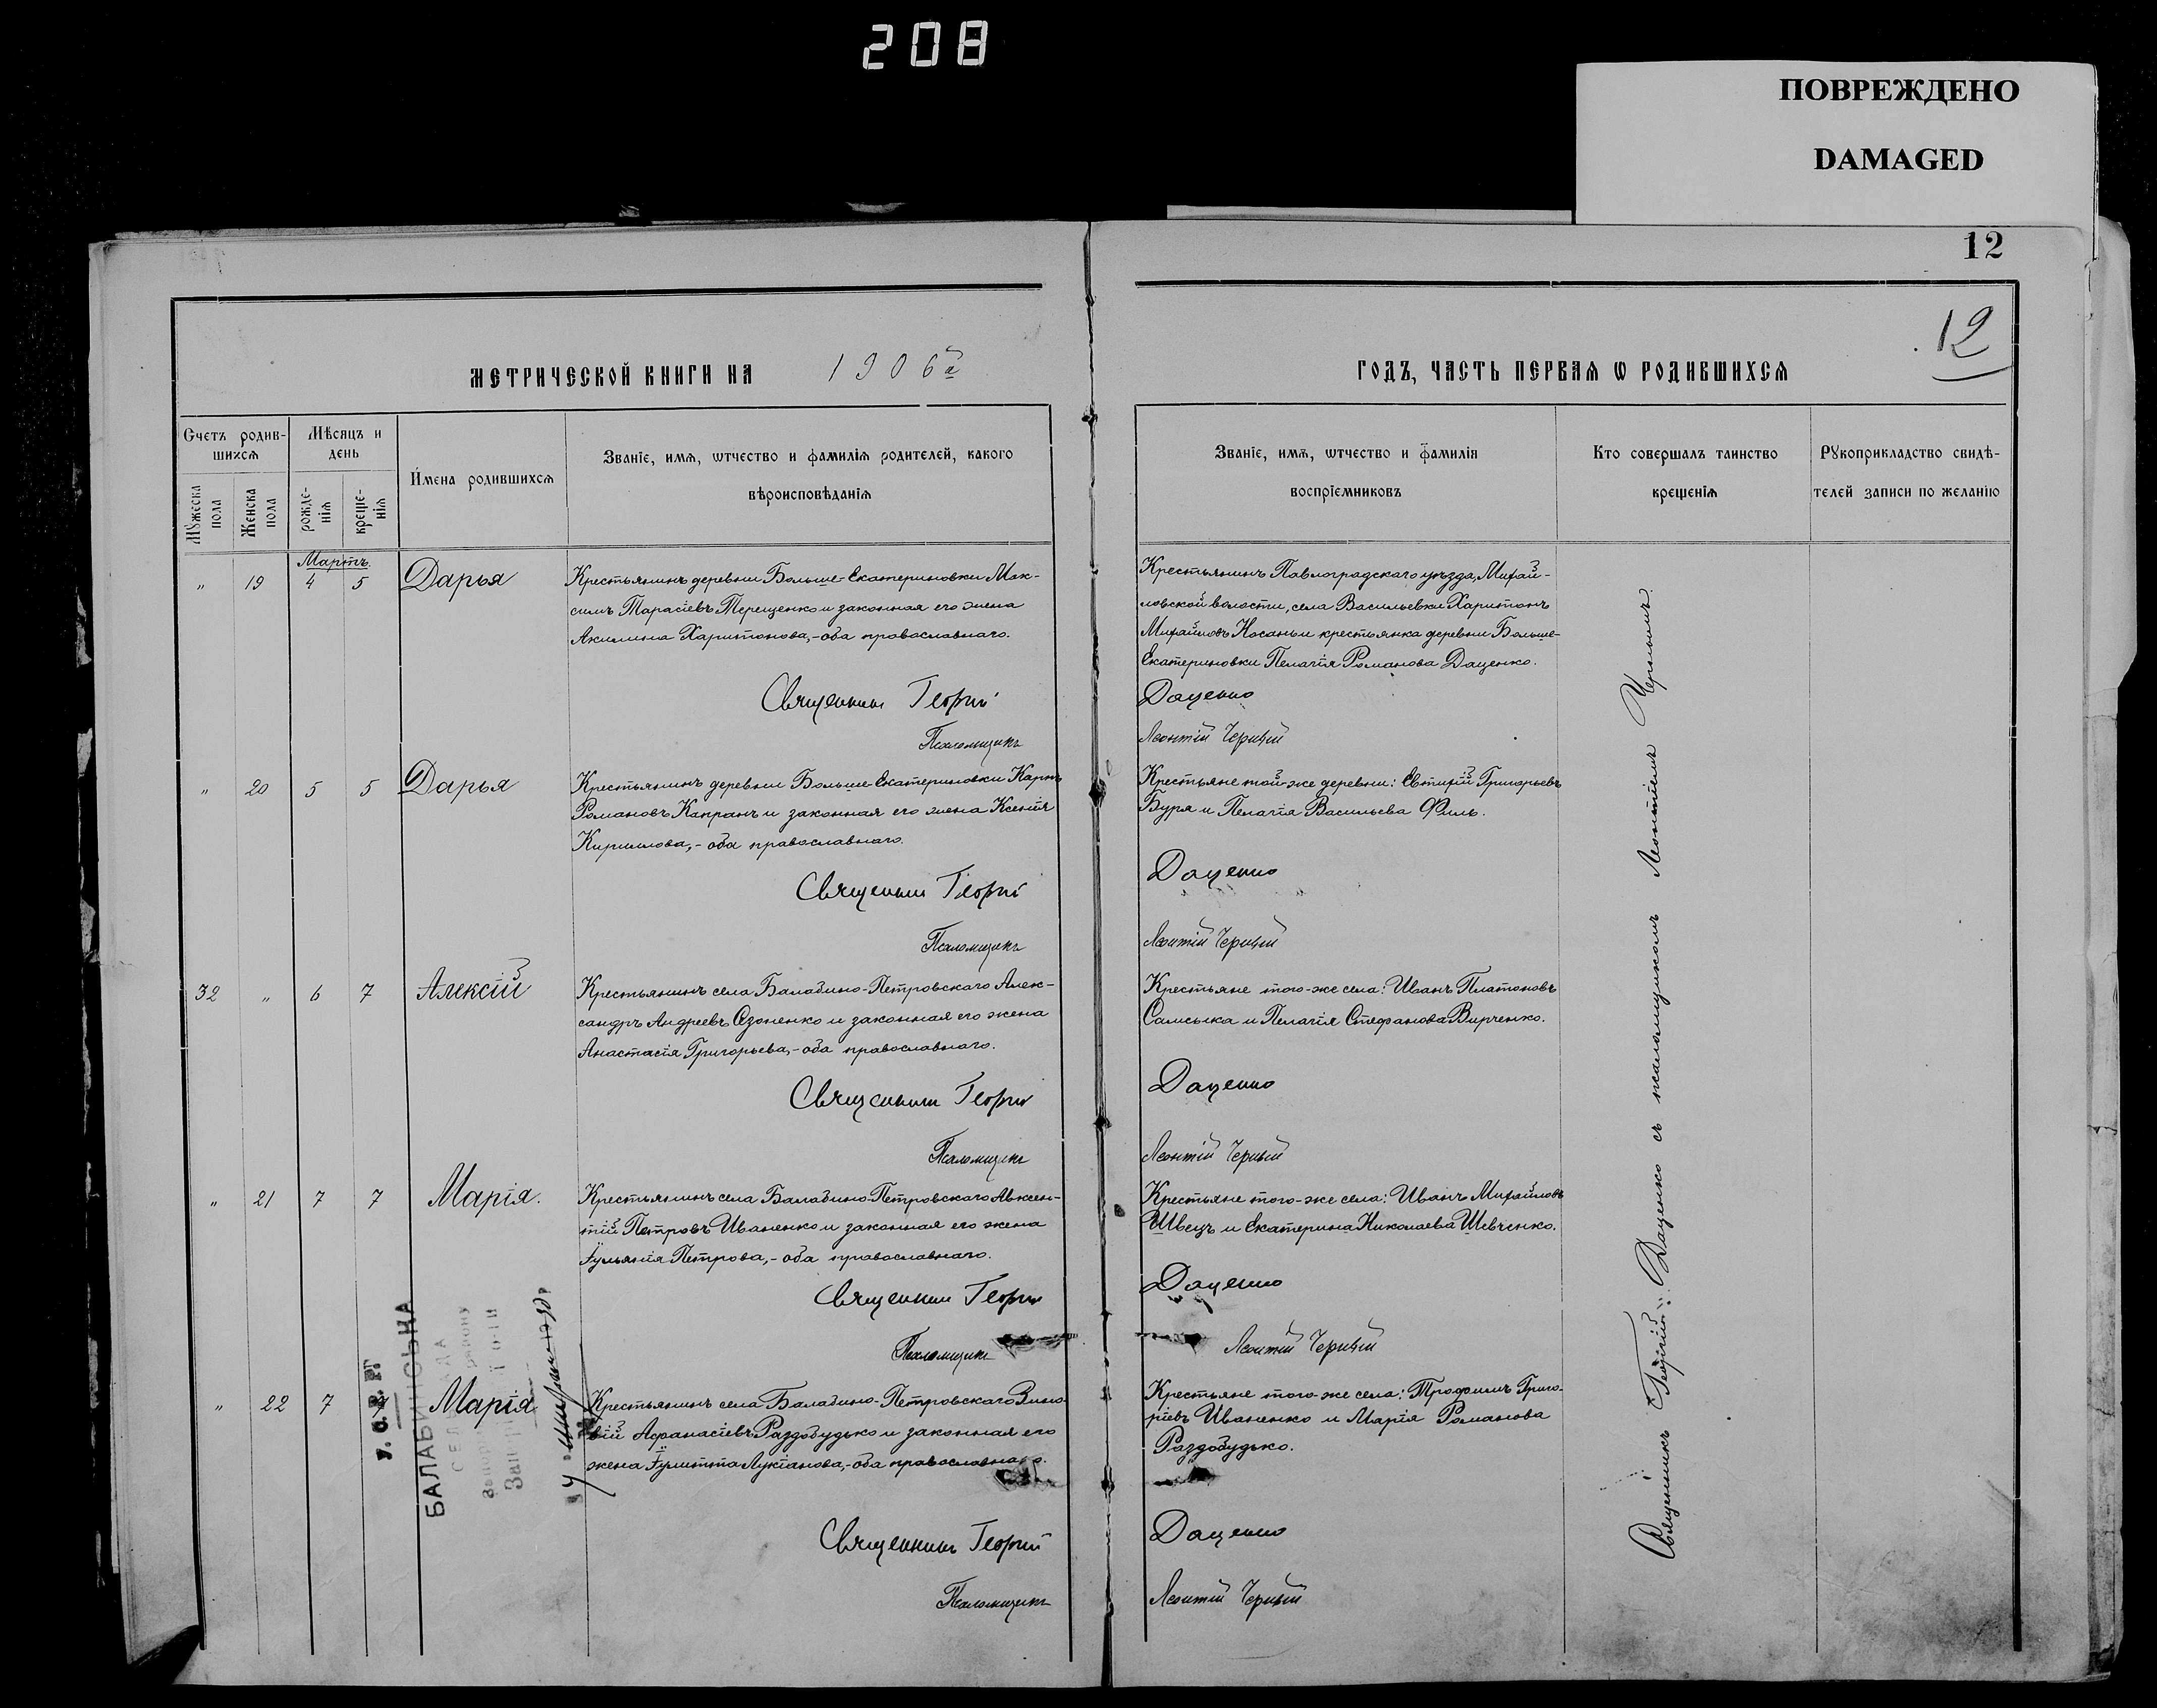 208
ПОВРЕЖДЕНО
DAMAGED
12
12
МЕТРИЧЕСКОЙ КНИГИ НА 1906й
ГОДЪ, ЧАСТЬ ПЕРВАЯ Ѡ РОДИВШИХСЯ
Счетъ родив-
шихсѧ
Мѣсяцъ и
день
Имена родившихсѧ
Званїе, имѧ, ѡтчество и фамилїѧ родителей, какого
вѣроисповѣданїѧ
Званїе, имѧ, ѡтчество и фамилїѧ
воспрїемниковъ
Кто совершалъ таинство
крещенїѧ
Рꙋкоприкладство свидѣ-
телей записи по желанію
Мꙋжеска
пола
Женска
пола
рожде-
нїѧ
креще-
нїѧ
Мартъ
" 19 4 5 Дарья
Крестьянинъ деревни Больше-Екатериновки Мак-
симъ Тарасіевъ Терещенко и законная его жена
Акилина Харитонова,-оба православнаго.
Крестьянинъ Павлоградскаго уѣзда, Михай-
ловской волости, села Васильевки Харитонъ
Михайловъ Носань и крестьянка деревни Больше-
Екатериновки Пелагія Романова Даценко.
Священникъ Георгій Даценко
Псаломщикъ Леонтій Черный
" 20 5 5 Дарья
Крестьянинъ деревни Больше Екатериновки Карпъ
Романовъ Капранъ и законная его жена Ксенія
Кириллова,-оба православнаго.
Крестьяне той-же деревни: Евтихій Григорьевъ
Буря и Пелагія Васильева Филь.
Священникъ Георгій Даценко
Псаломщикъ Леонтій Черный
32 " 6 7 Алексій
Крестьянинъ села Балабино-Петровскаго Алек-
сандръ Андреевъ Озоненко и законная его жена
Анастасія Григорьева,-оба православнаго.
Крестьяне того-же села: Иванъ Платоновъ
Самсыка и Пелагія Стефанова Вирченко.
Священникъ Георгій Даценко
Псаломщикъ Леонтій Черный
" 21 7 7 Марія.
Крестьянинъ села Балабино-Петровскаго Авксен-
тій Петровъ Иваненко и законная его жена
Іульянія Петрова,-оба православнаго.
Крестьяне того-же села: Иванъ Михайловъ
Швецъ и Екатерина Николаева Шевченко.
Священникъ Георгій Даценко
Псаломщикъ Леонтій Черный
" 22 7 7 Марія
Крестьянинъ села Балабино-Петровскаго Зино-
вій Афанасіевъ Раздобудько и законная его
жена Іулитта Лукіанова,-оба православнаго.
Крестьяне того-же села: Трофимъ Григо-
ріевъ Иваненко и Марія Романова
Раздобудько.
Священникъ Георгій Даценко
Псаломщикъ Леонтій Черный
Священникъ Георгій Даценко съ псаломщикомъ Леонтіемъ Чернымъ.
БАЛАБИНСЬКА